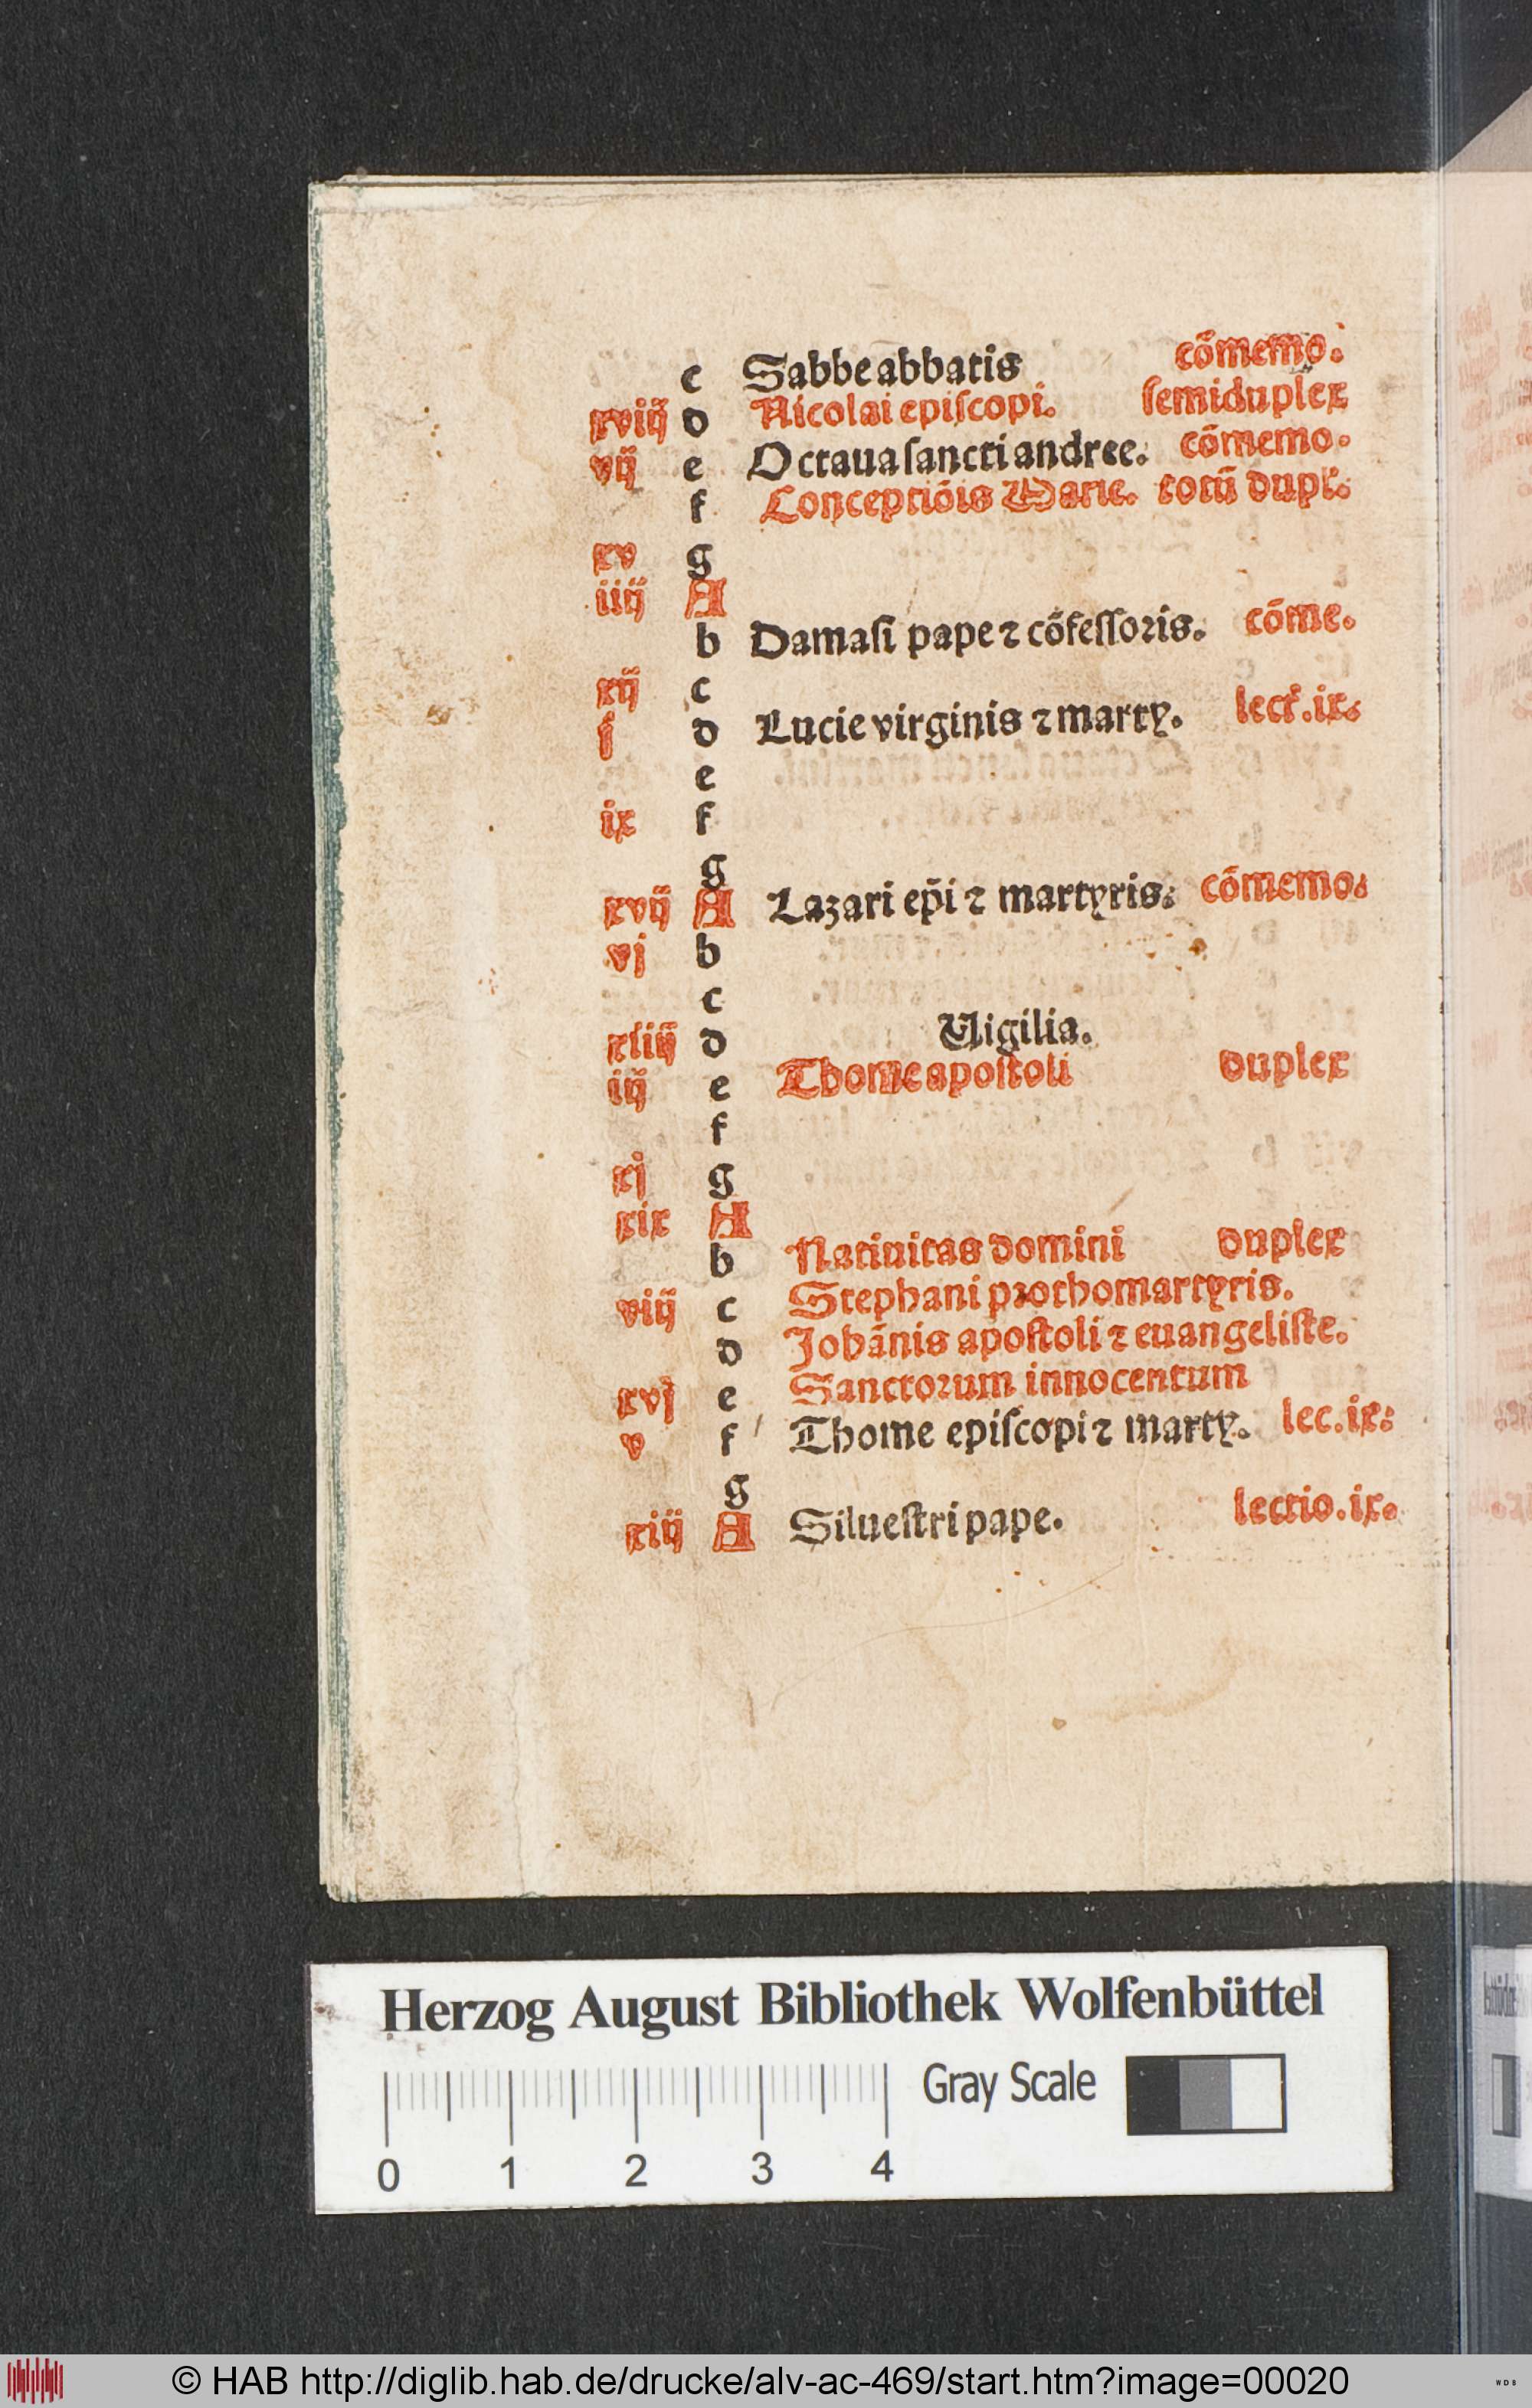 c Sabbe abbatis cōmemo.
xviij d Nicolai epiſcopi. ſemiduplex
vij e Octaua ſancti andree. cōmemo.
f Conceptiōis Marie. totū dupl'.
xv g
iiij A
b Damaſi pape ⁊ cōfeſſoꝛis. cōme.
xij c
j d Lucie virginis ⁊ marty. lect'.ix.
e
ix f
g
xvij A Lazari ep̄i ⁊ martyris. cōmemo.
vj b
c
xiiij d Uigilia.
iij e Thome apoſtoli duplex
f
xj g
xix A
b Natiuitas domini duplex
viij c Stephani pꝛothomartyris.
d Johānis apoſtoli ⁊ euangeliſte.
xvj e Sanctoꝛum innocentum
v f Thome epiſcopi ⁊ marty. lec.ix.
g
xiij A Silueſtri pape. lectio.ix.
Herzog August Bibliothek Wolfenbüttel
Gray Scale
0 1 2 3 4
© HAB http://diglib.hab.de/drucke/alv-ac-469/start.htm?image=00020